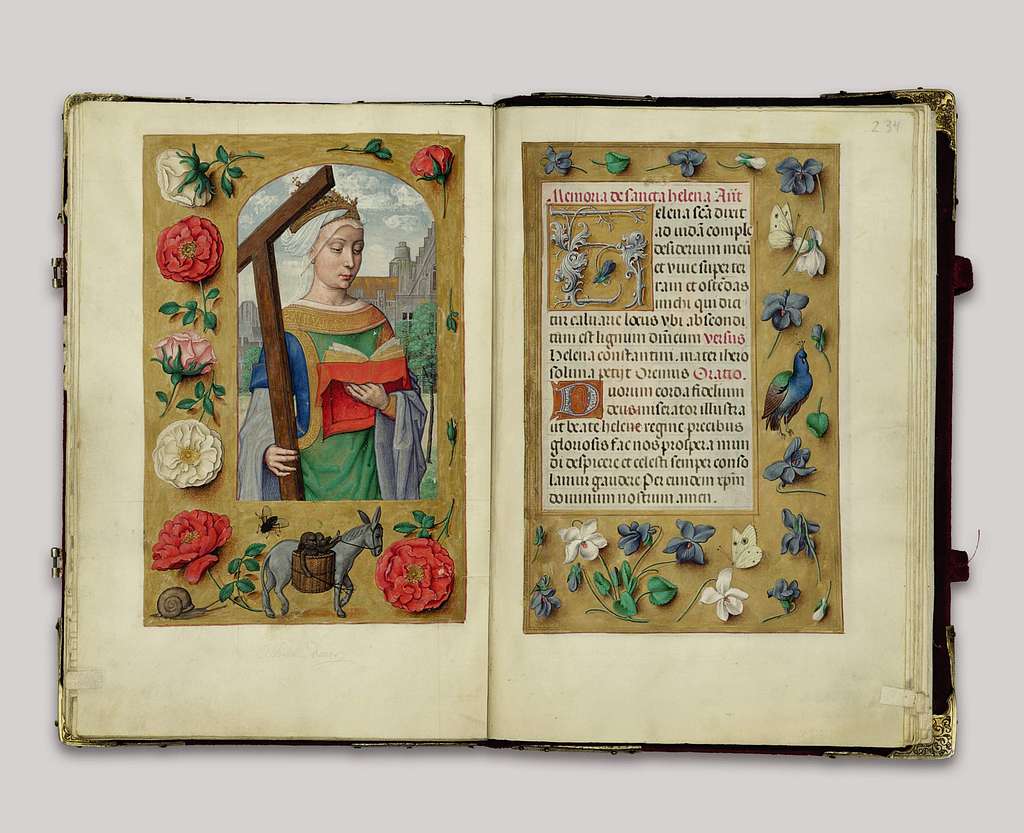 234
Memoria de sancta helena Añt
elena scã dixit
ad iudã comple
desiderium meũ
et viue super ter
ram et ostẽdas
michi qui dici
tur caluarie locus vbi abscondi
tum est lignum dñicum versus
Helena constantini mater ihero
solima petijt Oremus Oratio
Duorum corda fidelium
deus miserator illustra
ut beate helene regine precibus
gloriosis fac nos prospera mun
di despicere et celesti semper conso
lamur gaudere Per eundem xp̃m
dominum nostrum amen.